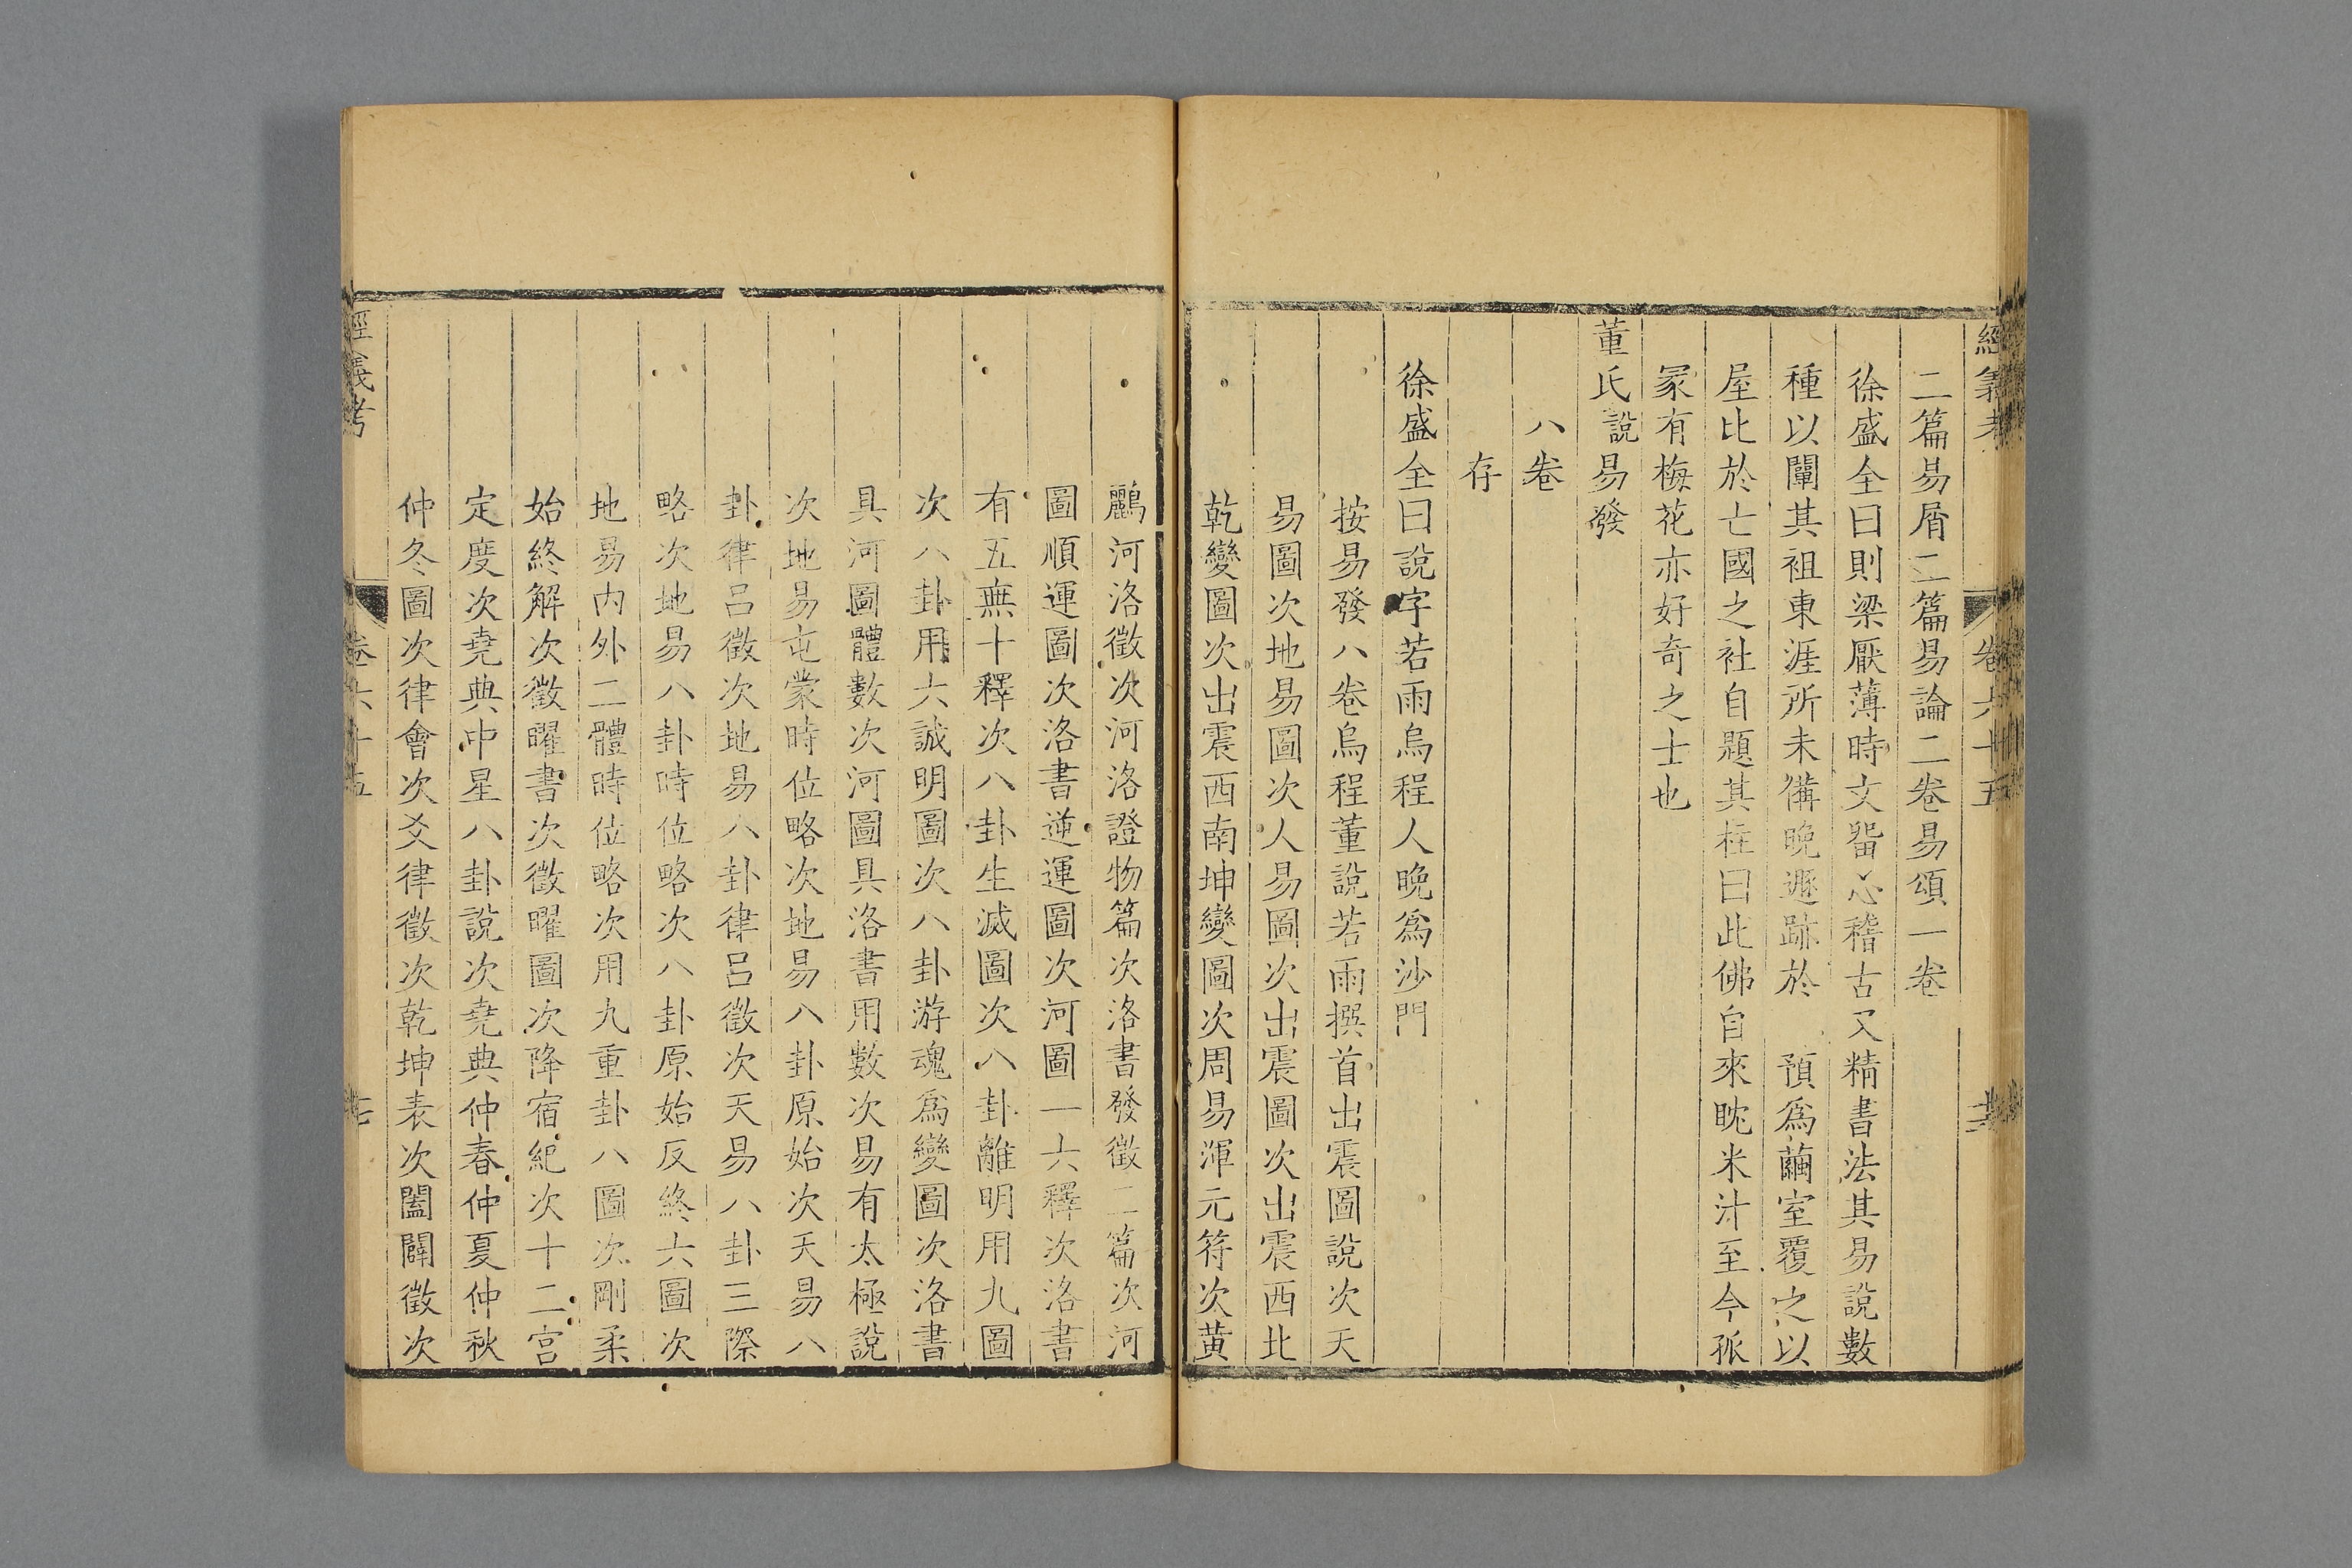 經義考 卷六十五
二篇易屑二篇易論二卷易頌一卷
徐盛全曰則梁厭薄時文畱心稽古又精書法其易說數
種以闡其祖東涯所未備晚遯跡於 預爲繭室覆之以
屋比於亡國之社自題其柱曰此佛自來眈米汁至今孤
冢有梅花亦好奇之士也
董氏說易發
八卷
存
徐盛全曰說字若雨烏程人晚爲沙門
按易發八卷烏程董說若雨撰首出震圖說次天
易圖次地易圖次人易圖次出震圖次出震西北
乾變圖次出震西南坤變圖次周易渾元符次黄
鸝河洛徵次河洛證物篇次洛書發徵二篇次河
圖順運圖次洛書逆運圖次河圖一六釋次洛書
有五無十釋次八卦生滅圖次八卦離明用九圖
次八卦用六誠明圖次八卦游魂爲變圖次洛書
具河圖體數次河圖具洛書用數次易有太極說
次地易屯蒙時位略次地易八卦原始次天易八
卦律呂徵次地易八卦律呂徵次天易八卦三際
略次地易八卦時位略次八卦原始反終六圖次
地易内外二體時位略次用九重卦八圖次剛柔
始終解次徵曜書次徵曜圖次降宿紀次十二宫
定度次堯典中星八卦說次堯典仲春仲夏仲秋
仲冬圖次律會次爻律徵次乾坤表次闔闢徵次
經義考 卷六十五